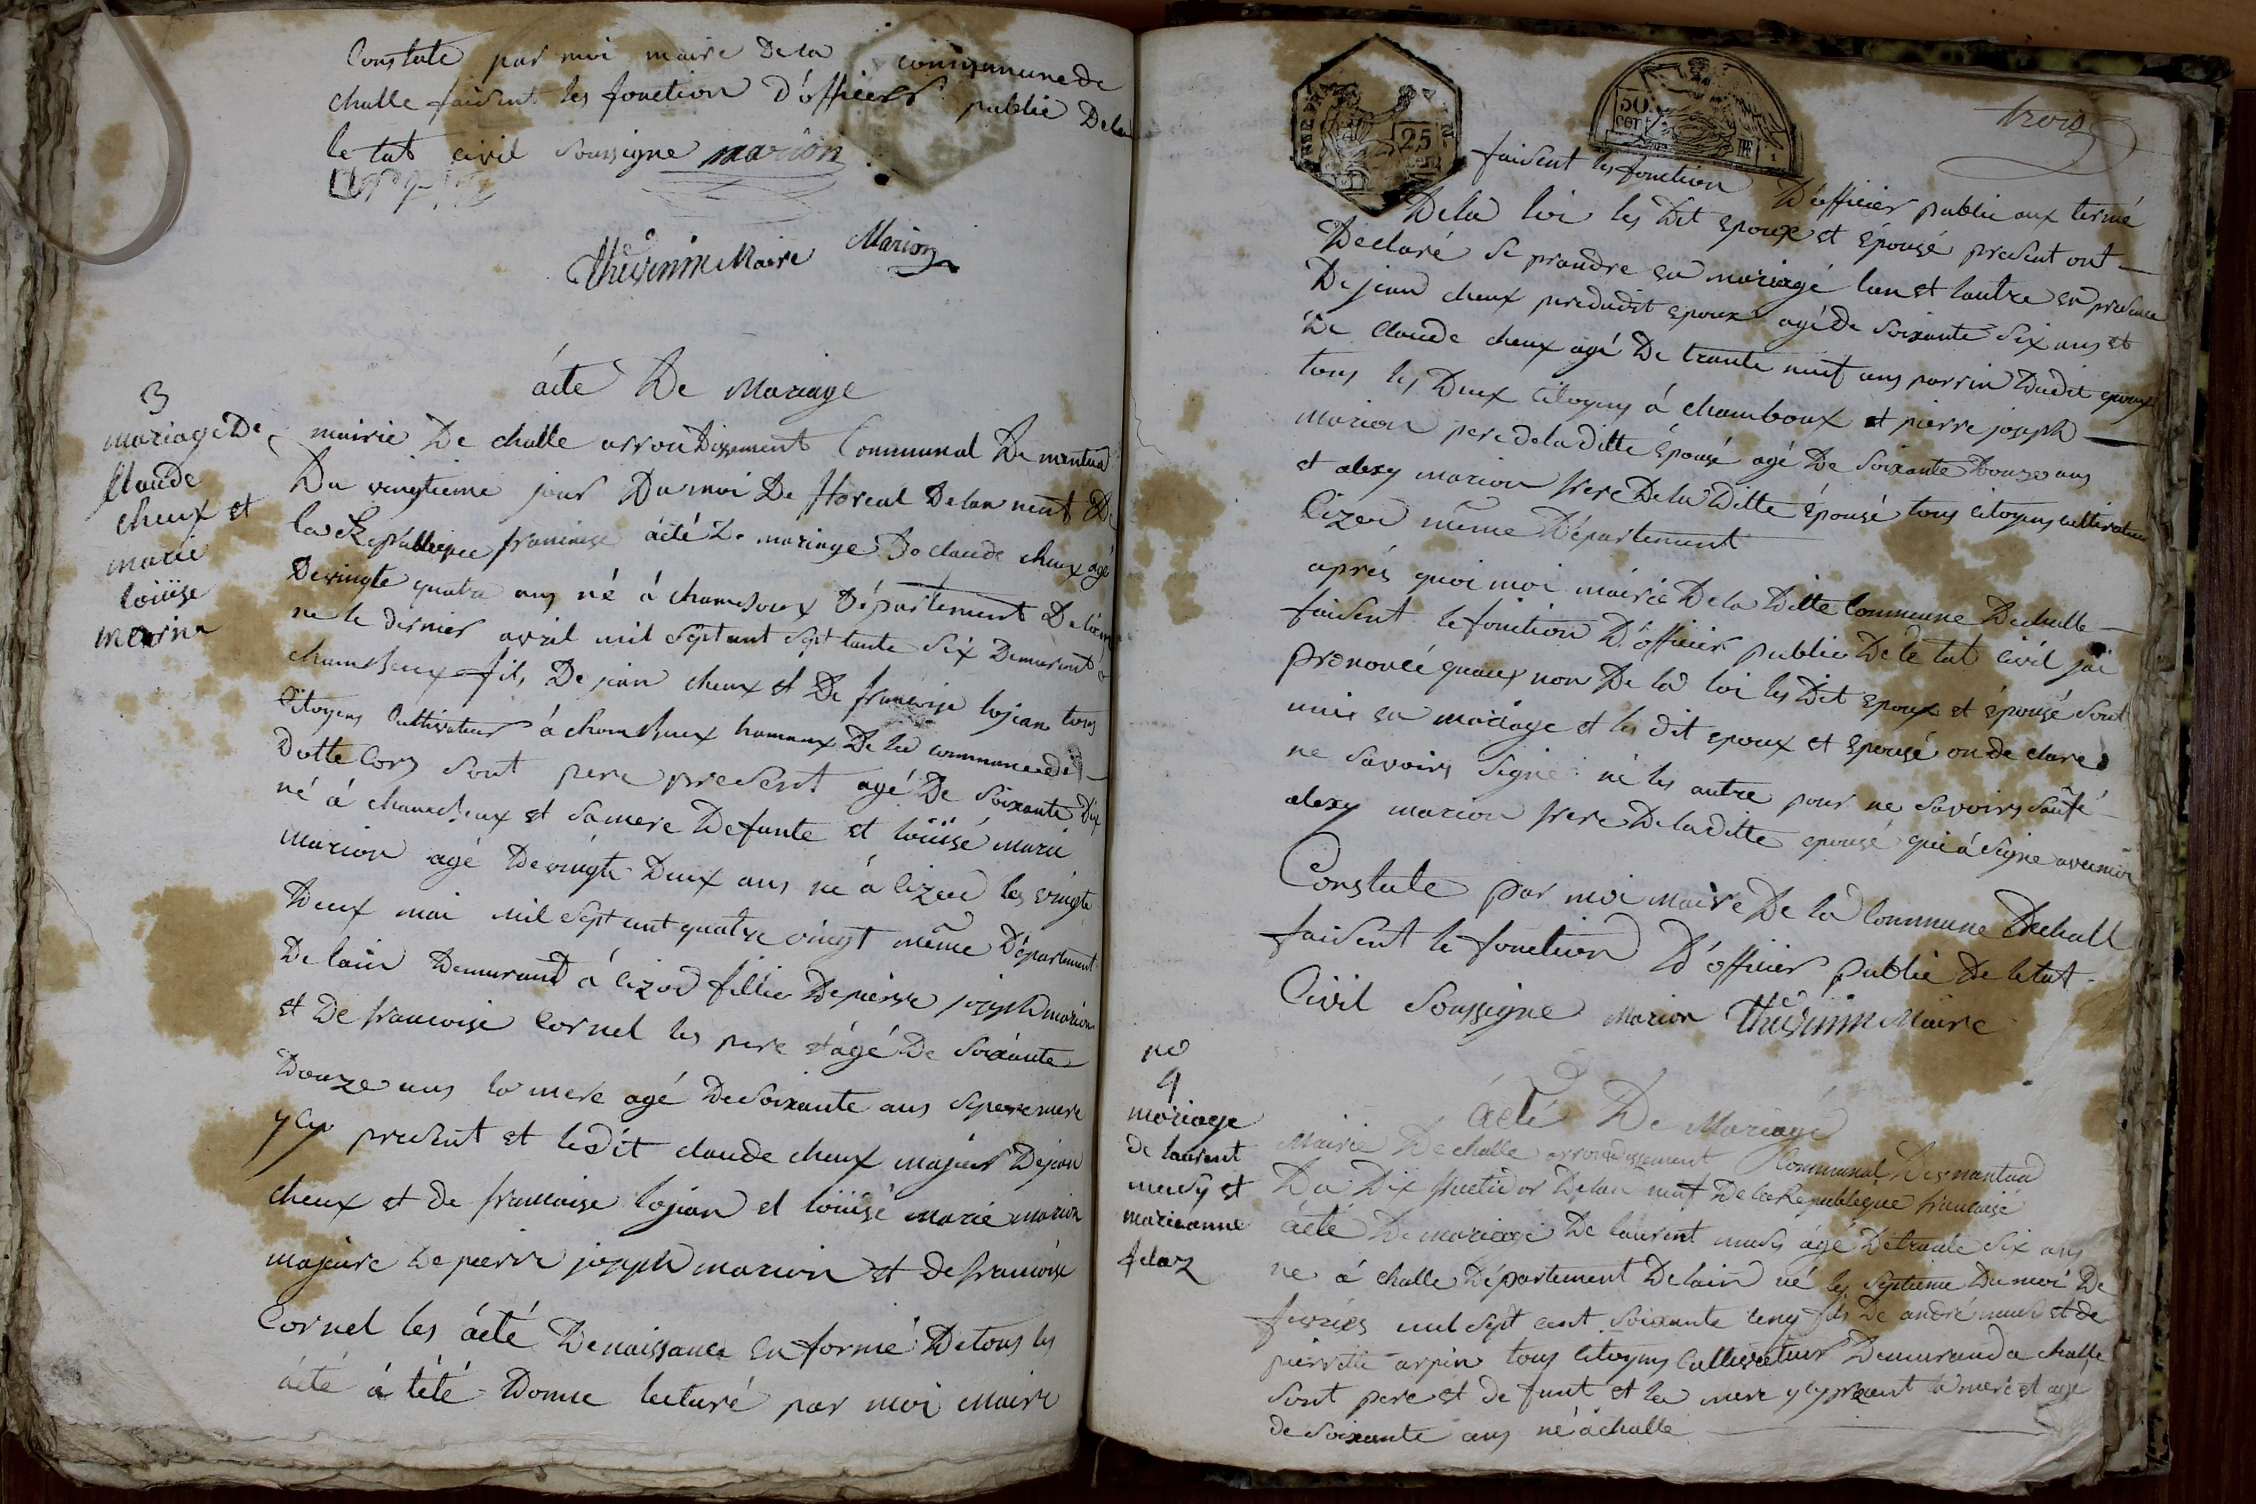 Constate par moi maire De la commune de
challe faisent les fonction D'officier public De la
le tat civil soussigne marion
Thévenin Maire Marion
3
mariage De
Claude
cheux et
marie
loüise
marion
ácte De Mariage
mairie De challe arrondissement Communal De mantua
Du vingtieme jour Du moi De floreal De lan neuf De
la Republique francaise ácté De mariage De claude cheux agé
De vingte quatre ans né á chamboux Département De lain
ne le dernier avril mil sept cent sept tante six Demurent á
chamboux fils De jean cheux et De francoise lojean tous
Citoyens Cultivateur á chamboux hameaux De la commune de
Dottecors sont pere present agé De soixante Dix
né á chamboux et sa mere Defunte et loüisé marie
marion agé De vingte Deux ans né á lizod les vingte
Deux mai mil sept cent quatre vingt même Département
De lain Demurant á lizod fillie De pierre joseph marion
et De francoise Cornel les pere et ágé De soixante
Douze ans la mere agé De soixante ans se pere mere
y cy present et le dit claude cheux majeur De jean
cheux et de francoise lojean et loüisé marie marion
majeure De pierre joseph marion et de francoise
Cornel les ácté De naissance en forme De tous les
ácté á tété Donne lecturé par moi Maire
trois
25
50
cent
faisent les fonction D'officier public aux termé
De la loi les Dit epoux et épousé present ont
Declaré se prandre en mariagé lun et lautre en presence
De jean cheux pere dudit epoux agé de soixante six ans et
De Claude cheux agé De trante nuit ans parrin Dudit epoux
tous les Deux citoyens á chamboux et pierre joseph
marion pere de la ditte Epousé agé De soixante Douze ans
et alexy marion frere De la Ditte épousé tous citoyens cultivateur
lizod même Département
aprés quoi moi mairie De la Ditte Commune De challe
faisent le fonction D'officier public De le tat civil jai
prenoncé quaux non De la loi les Dit epoux et épousé sont
unis en mariage et les dit epoux et Epousé on de clare
ne savoirs signe né les autre pour ne savoirs saufé
alexy marion frere De la ditte epousé qui á signe avec moi
Constate par moi maire De la Commune De chall
faisent le fonction D'officier public De le tat
Civil soussigne marion Thévenin Maire
no
4
mariage
de laurent
mudy et
marieanne
felaz
ácté De Mariage
Mairie De challe arrondissement Communal De mantua
Du Dix fructidor De lan neuf De la Republeque francaisé
ácté De mariage De laurent mudy ágé De trante six ans
ne á challe Département De lain né les septieme Du moi De
fevriés mil sept cent soixante cinq fils De andré mudy et de
pierrette arpin tous citoyens Cultivateur Demurand a challe
sont pere et de funt et la mere y cy present la mere et agé
de soixante ans né á challe